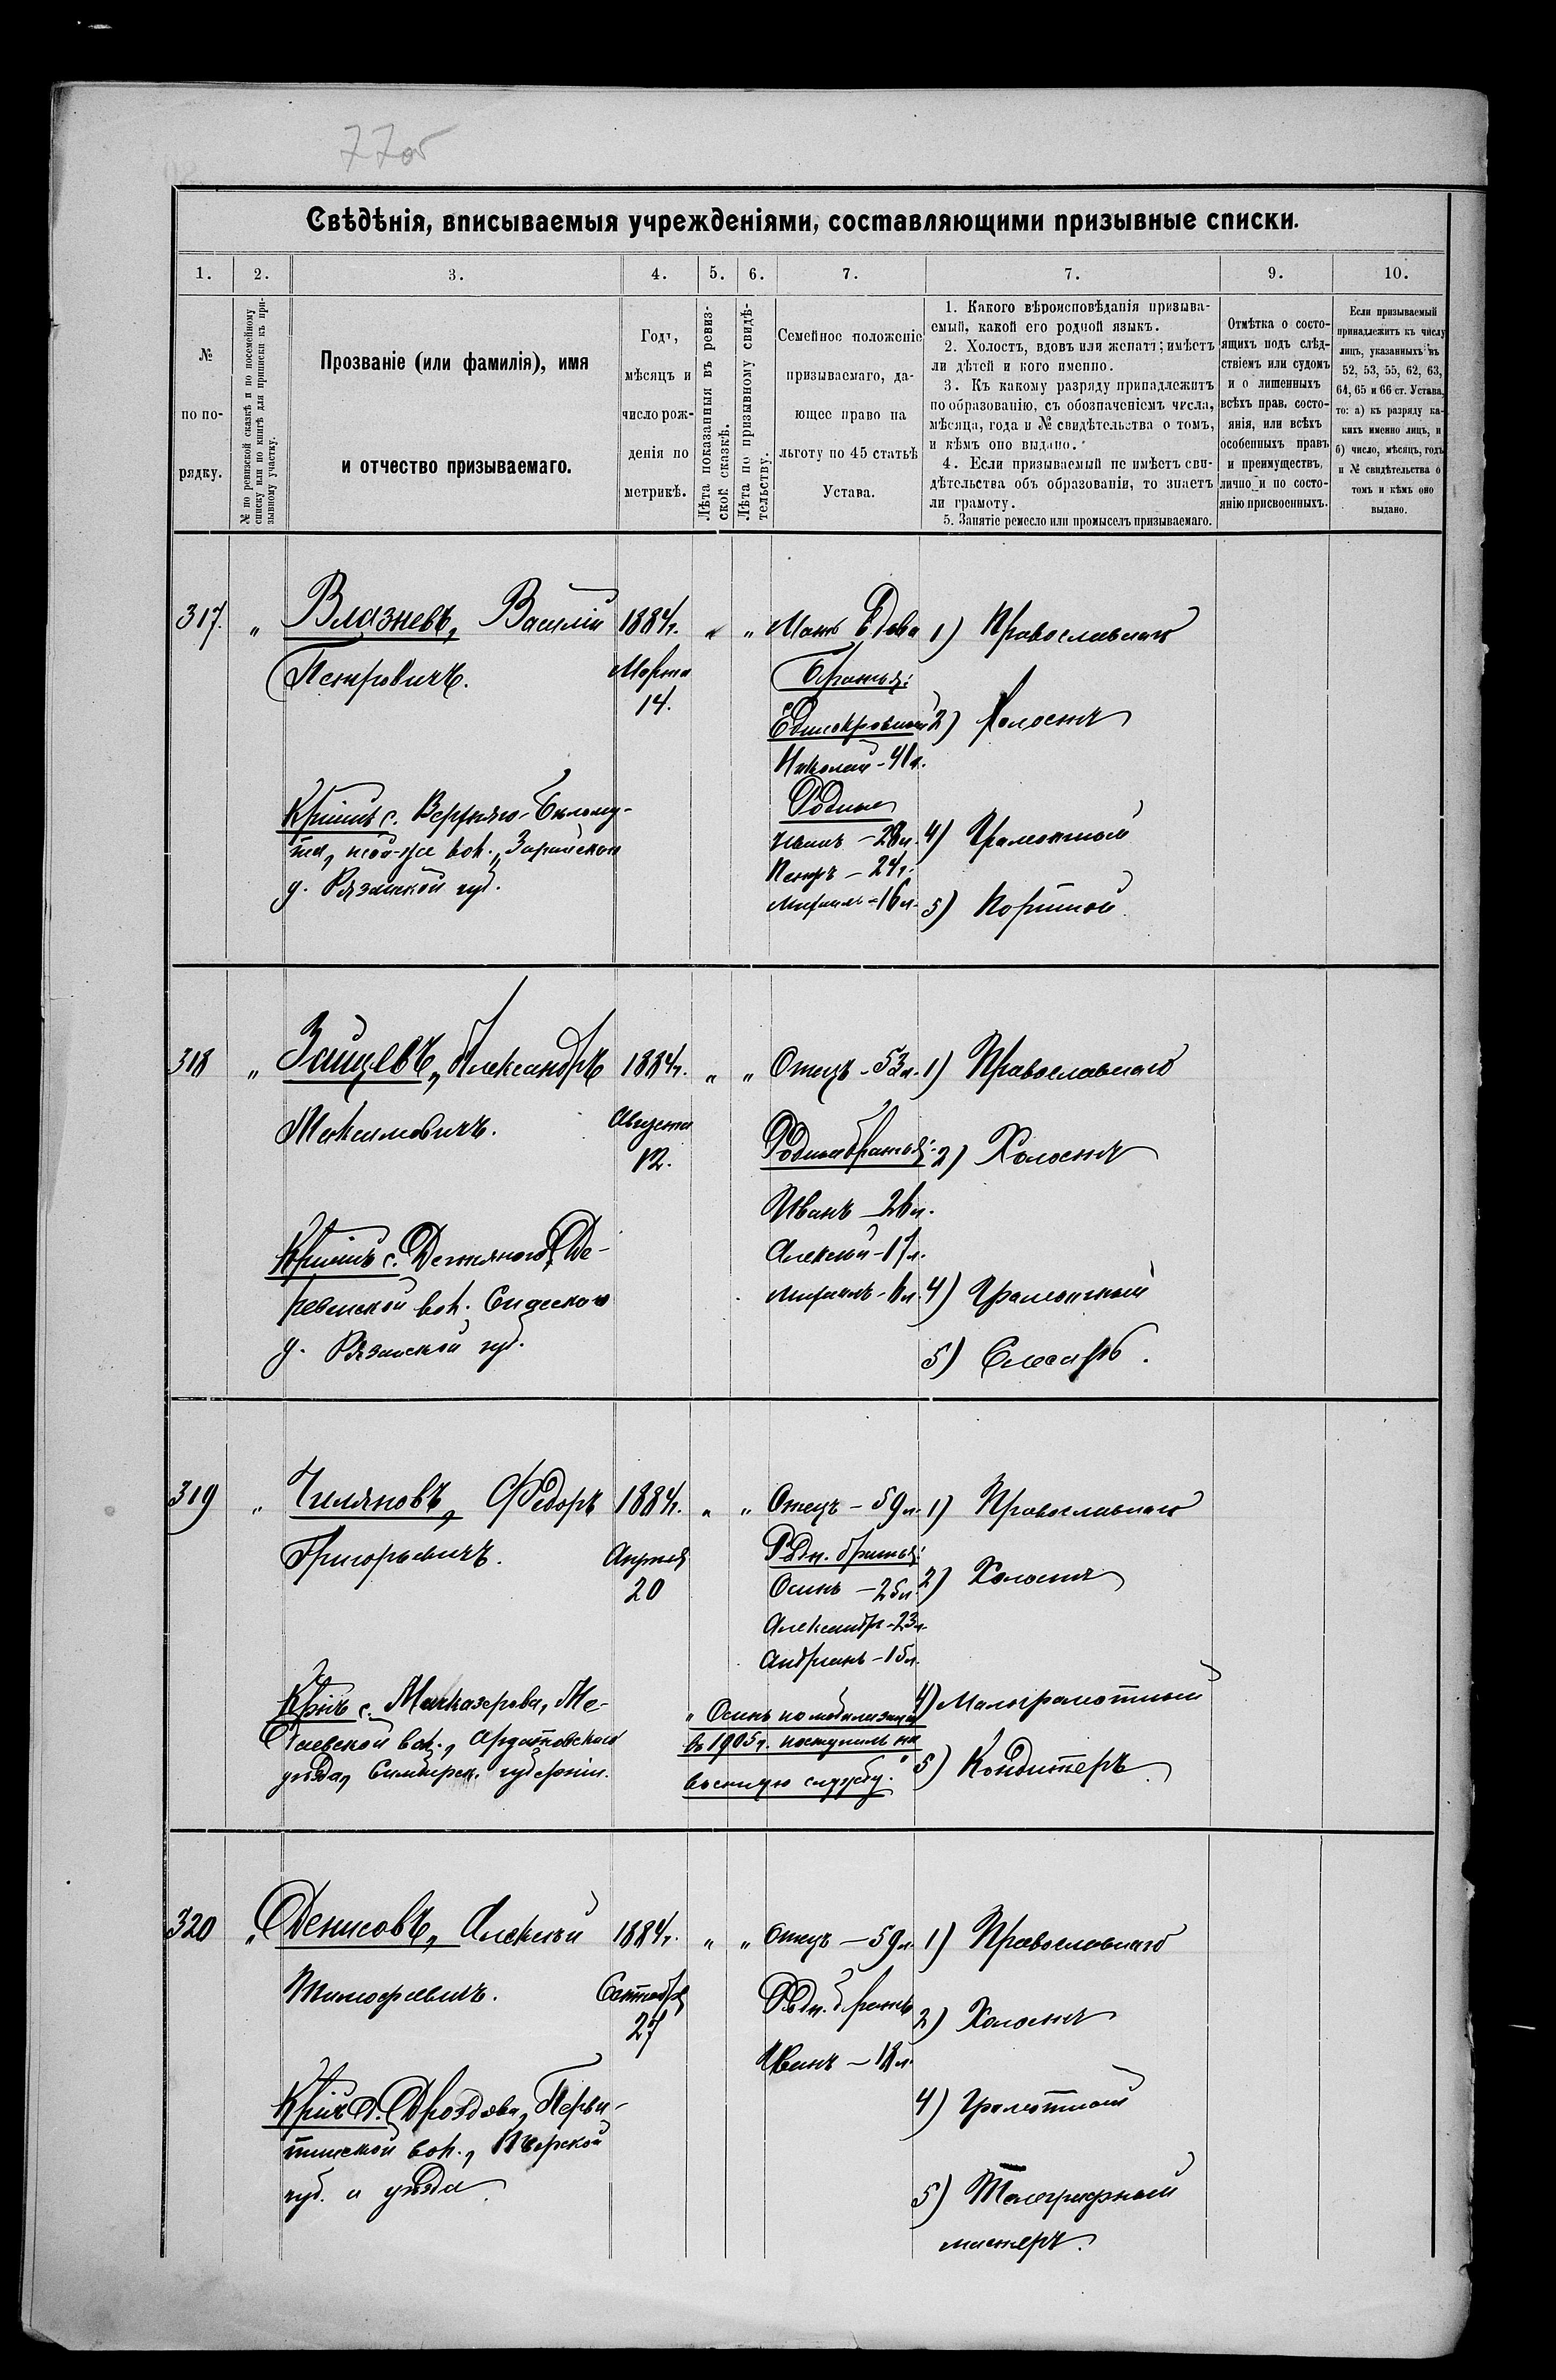 77об
Свѣдѣнія, вписываемыя учрежденіями, составляющими призывные списки.
1. 2. 3. 4. 5. 6. 7. 7. 9. 10.
№
по по-
рядку.
№ по ревизской сказкѣ и по посемейному
списку или по книгѣ для приписки къ при-
зывному участку.
Прозваніе (или фамилія), имя
и отчество призываемаго.
Годъ,
мѣсяцъ и
число рож-
денія по
метрикѣ.
Лѣта показанныя въ ревиз-
ской сказкѣ.
Лѣта по призывному свидѣ-
тельству.
Семейное положеніе
призываемаго, да-
ющее право на
льготу по 45 статьѣ
Устава.
1. Какого вѣроисповѣданія призыва-
емый, какой его родной языкъ.
2. Холостъ, вдовъ или женатъ; имѣетъ
ли дѣтей и кого именно.
3. Къ какому разряду принадлежитъ
по образованію, съ обозначеніемъ числа,
мѣсяца, года и № свидѣтельства о томъ,
и кѣмъ оно выдано.
4. Если призываемый не имѣетъ сви-
дѣтельства объ образованіи, то знаетъ
ли грамоту.
5. Занятіе ремесло или промыселъ призываемаго.
Отмѣтка о состо-
ящихъ подъ слѣд-
ствіемъ или судомъ
и о лишенныхъ
всѣхъ прав. состо-
янія, или всѣхъ
особенныхъ правъ
и преимуществъ,
лично и по состо-
янію присвоенныхъ.
Если призываемый
принадлежитъ къ числу
лицъ, указанныхъ въ
52, 53, 55, 62, 63,
64, 65 и 66 ст. Устава,
то: а) къ разряду ка-
кихъ именно лицъ, и
б) число, мѣсяцъ, годъ
и № свидѣтельства о
томъ и кѣмъ оно
выдано.
317. " Влазневъ, Василій
Петровичъ.
Кр-инъ с. Верхняго-Бѣлому-
та, той-же вол., Зарайскаго
у. Рязанской губ.
1884г.
Марта
14.
" "
Мать Вдова
Братья:
Единокровный
Николай - 41 л.
Родные
Иванъ - 28 л.
Петръ - 24 г.
Михаилъ - 16 л.
1) Православнаго
2) Холостъ
4) Грамотный
5) Портной
318 " Зайцевъ, Александръ
Максимовичъ.
Кр-инъ с. Дегтяного, Де-
ревенской вол. Спасскаго
у. Рязанской губ.
1884г.
Августа
12.
" "
Отецъ - 53 л.
Родные братья:
Иванъ - 26 л.
Алексѣй - 17 л.
Михаилъ - 6 л.
1) Православнаго
2) Холостъ
4) Грамотный
5) Слесарь.
319 " Чиляновъ, Ѳедоръ
Григорьевичъ.
Кр-нъ с. Мачказерова, Ме-
даевской вол., Ардатовскаго
уѣзда, Симбирск. губерніи.
1884г.
Апрѣля
20
" "
Отецъ - 59 л.
Родн. братья:
Осипъ - 25 л.
Александръ - 23 л.
Андріанъ - 15 л.
"Осипъ по мобилизаціи
въ 1905г. поступилъ на
военную службу."
1) Православнаго
2) Холостъ
4) Малограмотный
5) Кондитеръ.
320 " Денисовъ, Алексѣй
Тимофеевичъ.
Кр-инъ д. Дроздова, Первит-
инской вол., Тверской
губ. и уѣзда
1884г.
Сентября
27
" "
Отецъ - 59 л.
Родн. братъ
Иванъ - 18 л.
1) Православнаго
2) Холостъ
4) Грамотный
5) Телеграфный
мастеръ.